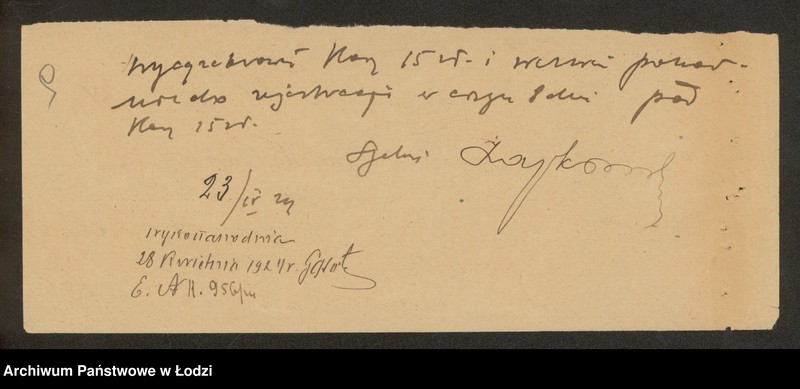 wyegzekwować karę 15 zł. i wezwać ponow-
nie do rejestracji w ciągu 8 dni pod
karą 15 zł.
23/IV 24
wykonano dnia
28 Kwietnia 1924 r.
E. A R. 956/
Archiwum Państwowe w Łodzi